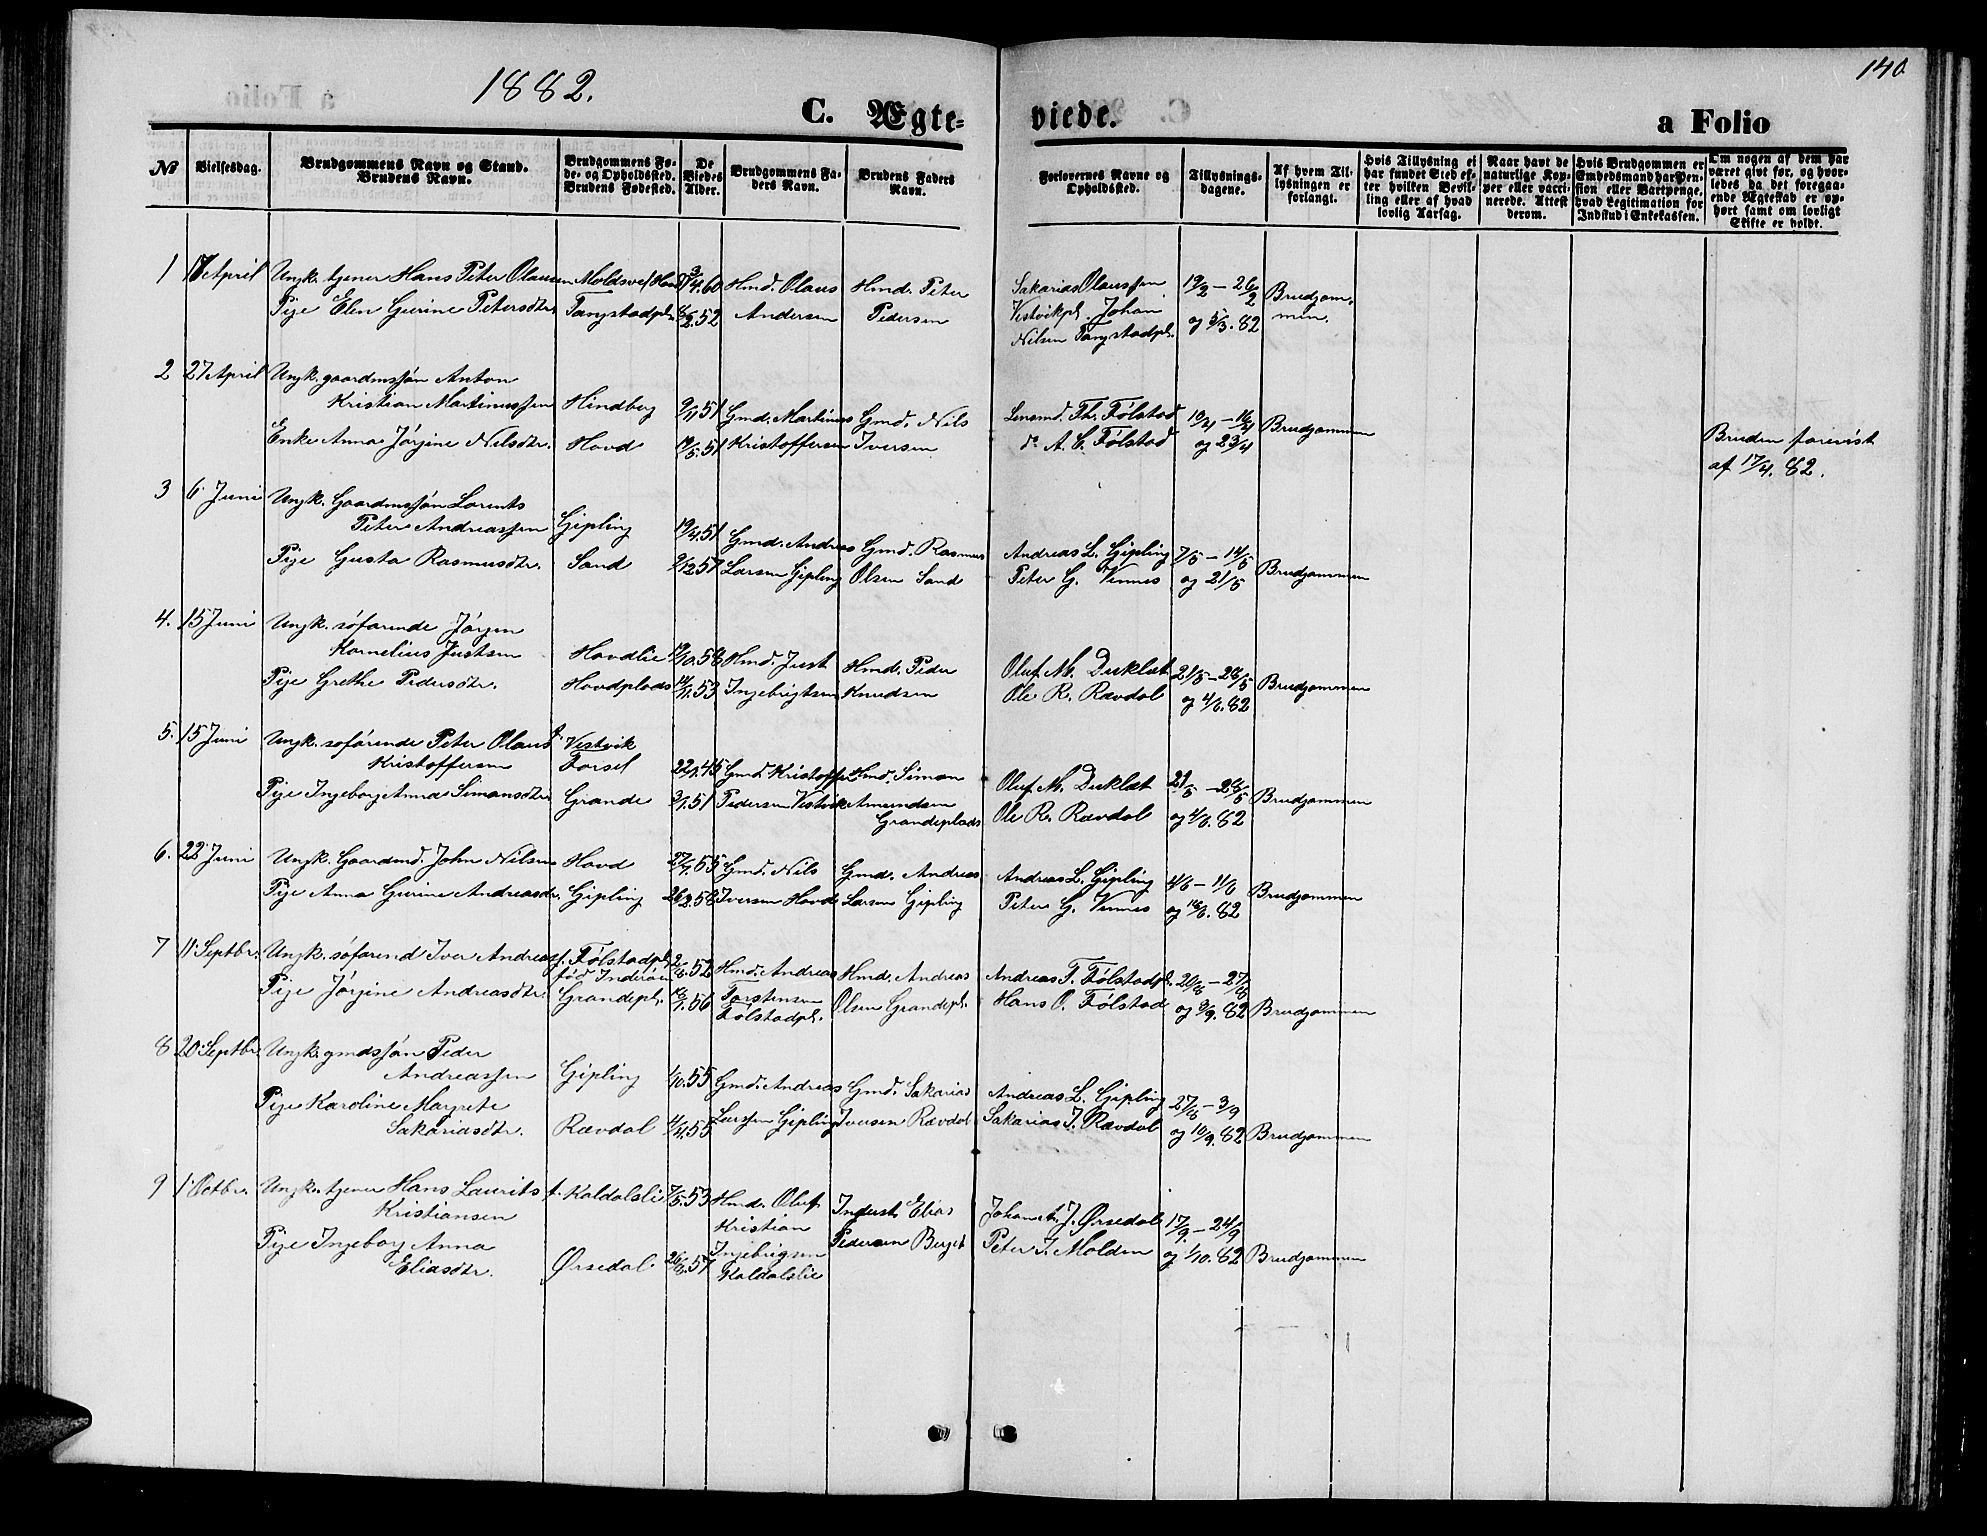 1882.
140
C. Ægte-
viede.
a Folio
№
Vielsesdag.
Brudgommens Navn og Stand.
Brudens Navn.
Brudgommens Fø-
de- og Opholdssted.
Brudens Fødested.
De
Viedes
Alder.
Brudgommens Fa-
ders Navn.
Brudens Faders
Navn.
Forlovernes Navne og
Opholdssted.
Tillysnings-
dagene.
Af hvem Til-
lysningen er
forlangt.
Hvis Tillysning ei
har fundet Sted ef-
ter hvilken Bevil-
ling eller af hvad
lovlig Aarsag.
Naar havt de
naturlige Kop-
per eller vacci-
nerede. Attest
derom.
Hvis Brudgommen er
Embedsmand har Pen-
sion eller Vartpenge,
hvad Legitimation for
Indskud i Enkekassen.
Om nogen af dem har
været givt før, og hvor-
ledes da det foregaa-
ende Ægteskab er op-
hørt samt om lovligt
Skifte er holdt.
1 17 April Ungk. tjener Hans Peter Olaussen 3/4.60 Hmd. Olaus Hmd. Peter
Pige Elen Gurine Petersdtr. Tangstadpl. 8/2.52 Andersen Pedersen
Sakarias Olaussen 19/2 – 26/2 Brudgom-
Vestvikpl. Johan og 5/3.82 men.
Nilsen Tangstadpl.
2 27 April Ungk. gaardmssøn Anton
Kristian Martinussen Hindberg 9/11 51 Gmd. Martinus Gmd. Nils
Enke Anna Jørgine Nilsdtr. Hovd 19/5.51 Kristoffersen Iversen
Lensmd. Th. Følstad 10/4 – 16/4 Brudgommen
do A. C. Følstad og 23/4
Bruden forevist
af 17/4.82.
3 6 Juni Ungk. Gaardmssøn Lorents
Peter Andreassen Gipling 19/4.51 Gmd. Andreas Gmd. Rasmus
Pige Gusta Rasmusdtr. Sand 9/12 57 Larsen Gipling Olsen Sand
Andreas L. Gipling 7/5 – 14/5 Brudgommen
Peter G. Vennes og 21/5
4. 15 Juni Ungk. søfarende Jørgen
Kornelius Justsen Hovdlie 19/10.58 Hmd. Just Hmd. Peder
Pige Grethe Pedersdtr. Hovdplads 14/7.53 Ingebrigtsen Knudsen
Oluf M. Dusklat 21/5 – 28/5 Brudgommen
Ole R. Rævdal og 4/6.82
5. 15 Juni Ungk. søfarende Peter Olaus f. Vestvik
Kristoffersen Forsel 22/7.45 Gmd. Kristoffer Hmd. Simon
Pige Ingeborg Anna Simonsdtr. Grande 3/7.51 Pedersen Vestvik Amundsen
Grandeplads
Oluf M. Dusklat 21/5 – 28/5 Brudgommen
Ole R. Rævdal og 4/6.82
6. 22 Juni Ungk. Gaardmd. John Nilsen Hovd 27/7.55 Gmd. Nils Gmd. Andreas
Pige Anna Gurine Andreasdtr. Gipling 26/2.58 Iversen Hovd Larsen Gipling
Andreas L. Gipling 4/6 – 11/6 Brudgommen
Peter G. Vennes og 18/6.82
7 11 Septbr. Ungk. søfarend Iver Andreas f. Følstadpl. 2/8.52 Hmd. Andreas Hmd. Andreas
fød Inderøen
Pige Jørgine Andreasdtr. Grandepl. 7.56 Torstensen Olsen Grandepl.
Følstadpl.
Andreas T. Følstadpl. 20/8 – 27/8
Hans O. Følstad og 3/9.82 Brudgommen
8 20 Septbr. Ungk. gmdssøn Peder
Andreassen Gipling 1/10.55 Gmd. Andreas Gmd. Sakarias
Pige Karoline Margrete Larssen Gipling Iversen Rævdal
Sakariasdtr. Rævdal 4/4.55
Andreas L. Gipling 27/8 – 3/9
Sakarias I. Rævdal og 10/9.82 Brudgommen
9 1 Octbr. Ungk. tjener Hans Laurits f. Kaldalslie 7/5.53 Hmd. Oluf Inderst. Elias
Kristiansen Kristian Pedersen Berget
Pige Ingeborg Anna Ingebrigsen
Eliasdtr. Ørsedal. 26/8.57 Kaldalslie
J. Ørsedal 17/9 – 24/9
Peter J. Molden og 1/10.82 Brudgommen